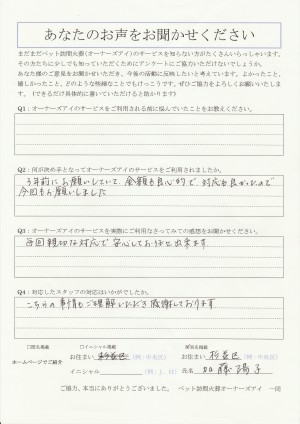 あなたのお声をお聞かせください
まだまだペット訪問火葬(オーナーズアイ)のサービスを知らない方がたくさんいらっしゃいます。
その方たちに少しでも知っていただくためにアンケートにご協力いただけないでしょうか。
あなた様のご意見をお聞かせいただき、今後の活動に反映したいと考えています。よかったこと、
嬉しかったこと、どのような些細なことでもけっこうです。ぜひご協力をよろしくお願いいたしま
す。(できるだけ具体的に書いていただけると助かります)
Q1:オーナーズアイのサービスをご利用される前に悩んでいたことをお教えください。
Q2:何が決め手となってオーナーズアイのサービスをご利用されましたか。
3年前にお願いしていて、金額も良心的で、対応も良かったので
今回もお願いしました
Q3:オーナーズアイのサービスを実際にご利用なさってみての感想をお聞かせください。
毎回親切な対応で安心しておまかせ出来ます
Q4:対応したスタッフの対応はいかがでしたか。
こちらの事情もご理解いただき感謝しております
□匿名掲載 □イニシャル掲載 実名掲載
ホームページでご紹介 お住い 杉並区 (例:中央区) お住まい 杉並区 (例:中央区)
イニシャル (例:J、H) 氏名 加藤陽子
ご協力、本当にありがとうございました。 ペット訪問火葬オーナーズアイ 一同